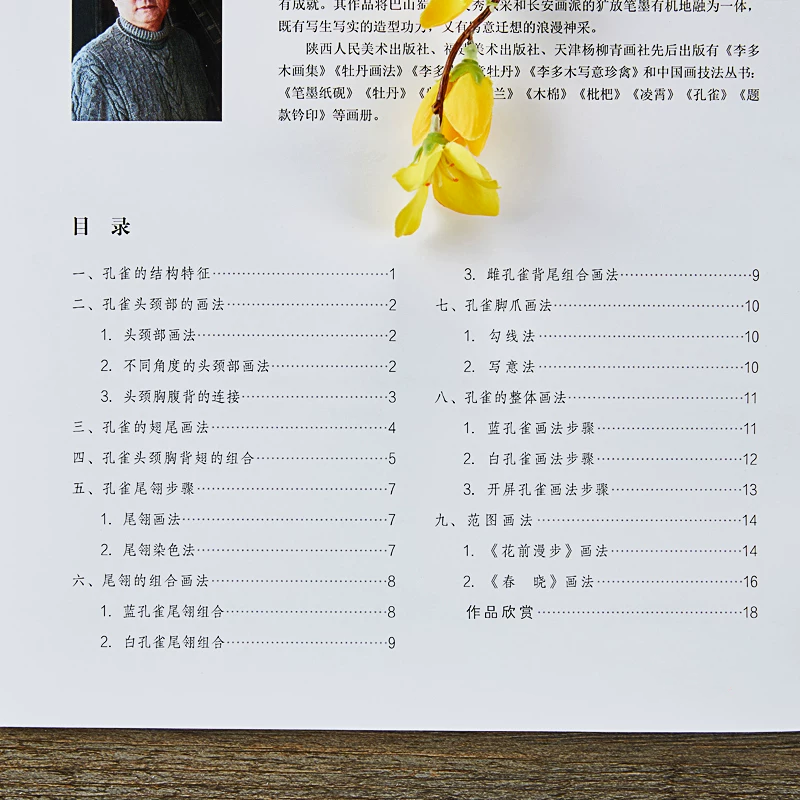 有成就。其作品将巴山蜀 秀 来和长安画派的扩放笔墨有机地融为一体，
既有写生写实的造型功力，又有写意迁想的浪漫神采。
陕西人民美术出版社、 美术出版社、天津杨柳青画社先后出版有《李多
木画集》《牡丹画法》《李多 意牡丹》《李多木写意珍禽》和中国画技法丛书：
《笔墨纸砚》《牡丹》 兰》《木棉》《枇杷》《凌霄》《孔雀》《题
款钤印》等画册。
目 录
一、孔雀的结构特征……1
二、孔雀头颈部的画法……2
1. 头颈部画法……2
2. 不同角度的头颈部画法……2
3. 头颈胸腹背的连接……3
三、孔雀的翅尾画法……4
四、孔雀头颈胸背翅的组合……5
五、孔雀尾翎步骤……7
1. 尾翎画法……7
2. 尾翎染色法……7
六、尾翎的组合画法……8
1. 蓝孔雀尾翎组合……8
2. 白孔雀尾翎组合……9
3. 雌孔雀背尾组合画法……9
七、孔雀脚爪画法……10
1. 勾线法……10
2. 写意法……10
八、孔雀的整体画法……11
1. 蓝孔雀画法步骤……11
2. 白孔雀画法步骤……12
3. 开屏孔雀画法步骤……13
九、范图画法……14
1. 《花前漫步》画法……14
2. 《春 晓》画法……16
作品欣赏……18